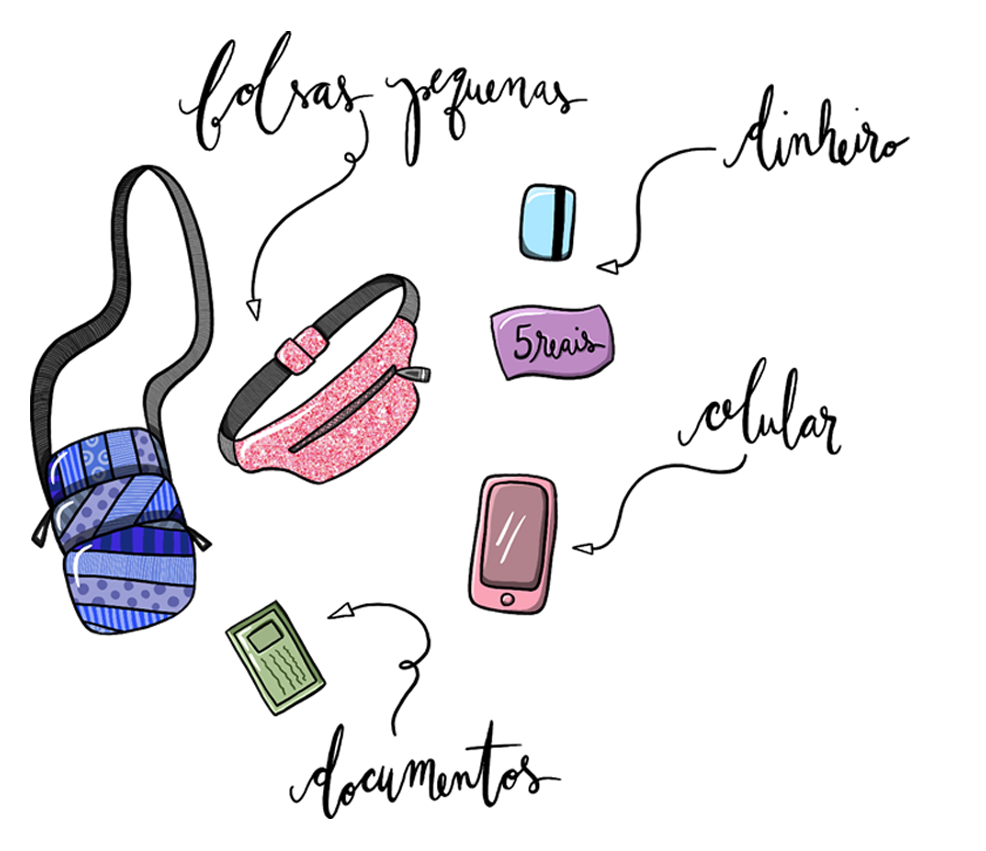 bolsas pequenas
dinheiro
5 reais
celular
documentos